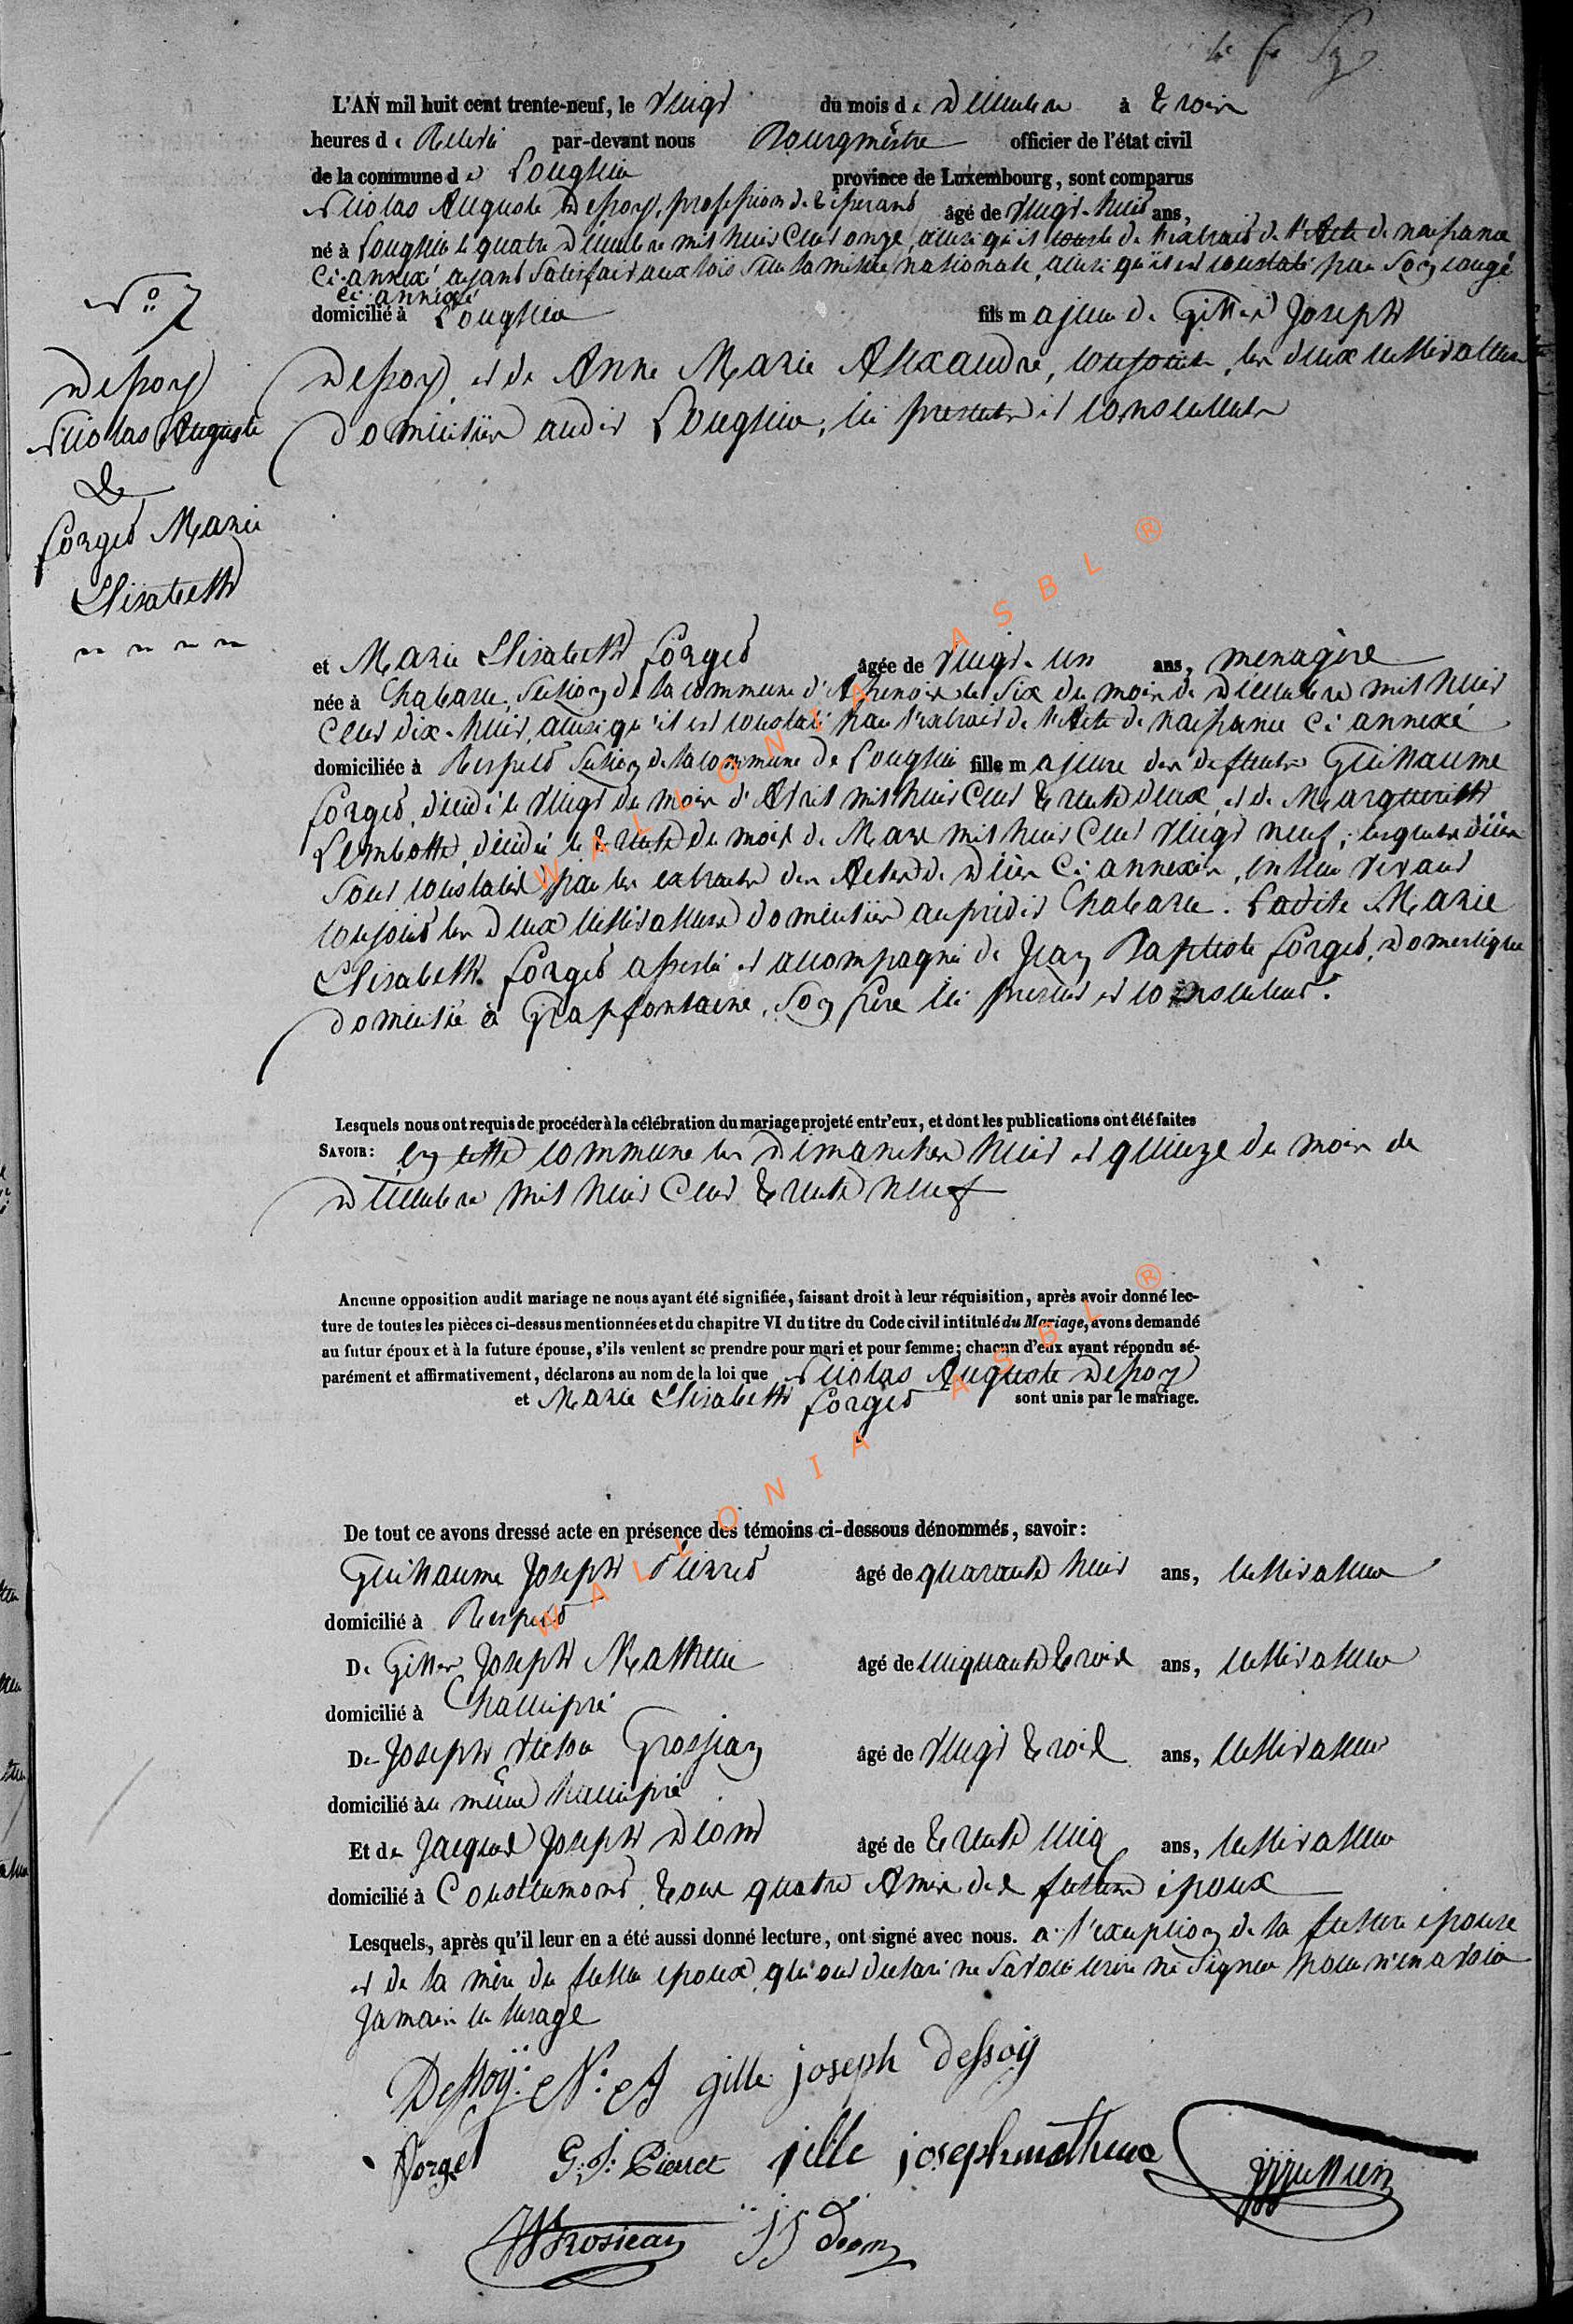 L'AN mil huit cent trente-neuf, le vingt du mois de Décembre à trois
heures de Relevée par-devant nous Bourgmestre officier de l'état civil
de la commune de Louglier province de Luxembourg, sont comparus
Nicolas Auguste Dessoy, profession de tisserand âgé de vingt-huit ans,
né à Louglier le quatre Décembre mil huit cent onze, ainsi qu'il conste de l'extrait de l'Acte de naissance
ci-annexé, ayant satisfait aux lois sur la milice nationale, ainsi qu'il est constaté par son congé
ci annexé
domicilié à Louglier fils majeur de Gilles Joseph
Dessoy et de Anne Marie Alexandre, conjoints, les deux cultivateurs
domiciliés audit Louglier, ici présents et consentants
N° 7
Dessoy
Nicolas Auguste
&
Forget Marie
Elisabeth
et Marie Elisabeth Forget âgée de vingt-un ans, ménagère
née à Chabare, section de la commune d' le six du mois de Décembre mil huit
cent dix-huit, ainsi qu'il est constaté par l'extrait de l'Acte de naissance ci annexé
domiciliée à Respelt section de la commune de Louglier fille majeure des défunts Guillaume
Forget, décédé le vingt du mois d'Avril mil huit cent trente deux, et de Marguerite
Lembotte, décédée le trente du mois de Mars mil huit cent vingt neuf; lesquels décès
sont constatés par les extraits des Actes de Décès ci annexés, en leur vivant
conjoints les deux cultivateurs domiciliés au prédit Chabare. Ladite Marie
Elisabeth Forget assistée et accompagnée de Jean Baptiste Forget, Domestique
domicilié à Grapfontaine, son frère ici présent et consentant.
Lesquels nous ont requis de procéder à la célébration du mariage projeté entr'eux, et dont les publications ont été faites
SAVOIR: en cette commune les Dimanches huit et quinze du mois de
Décembre mil huit cent trente neuf
Aucune opposition audit mariage ne nous ayant été signifiée, faisant droit à leur réquisition, après avoir donné lec-
ture de toutes les pièces ci-dessus mentionnées et du chapitre VI du titre du Code civil intitulé du Mariage, avons demandé
au futur époux et à la future épouse, s'ils veulent se prendre pour mari et pour femme; chacun d'eux ayant répondu sé-
parément et affirmativement, déclarons au nom de la loi que Nicolas Auguste Dessoy
et Marie Elisabeth Forget sont unis par le mariage.
De tout ce avons dressé acte en présence des témoins ci-dessous dénommés, savoir:
Guillaume Joseph Pierret âgé de quarante huit ans, cultivateur
domicilié à Respelt
De Gilles Joseph Mathieu âgé de cinquante trois ans, cultivateur
domicilié à Hamipré
De Joseph Victor Grosjean âgé de vingt trois ans, cultivateur
domicilié au même hamipré
Et de Jacques Joseph Diom âgé de trente cinq ans, cultivateur
domicilié à Coustumont, tous quatre Amis des futurs époux
Lesquels, après qu'il leur en a été aussi donné lecture, ont signé avec nous. à l'exception de la future épouse
et de la mère du futur époux, qui ont déclaré ne savoir écrire ni signer pour n'en avoir
jamais eu l'usage
Dessoÿ: N: A gille joseph dessoÿ
Forget G: J: Pierret jille joseph mathieu
JVGrosjean JJ Diom
WALLONIA ASBL ®
WALLONIA ASBL ®